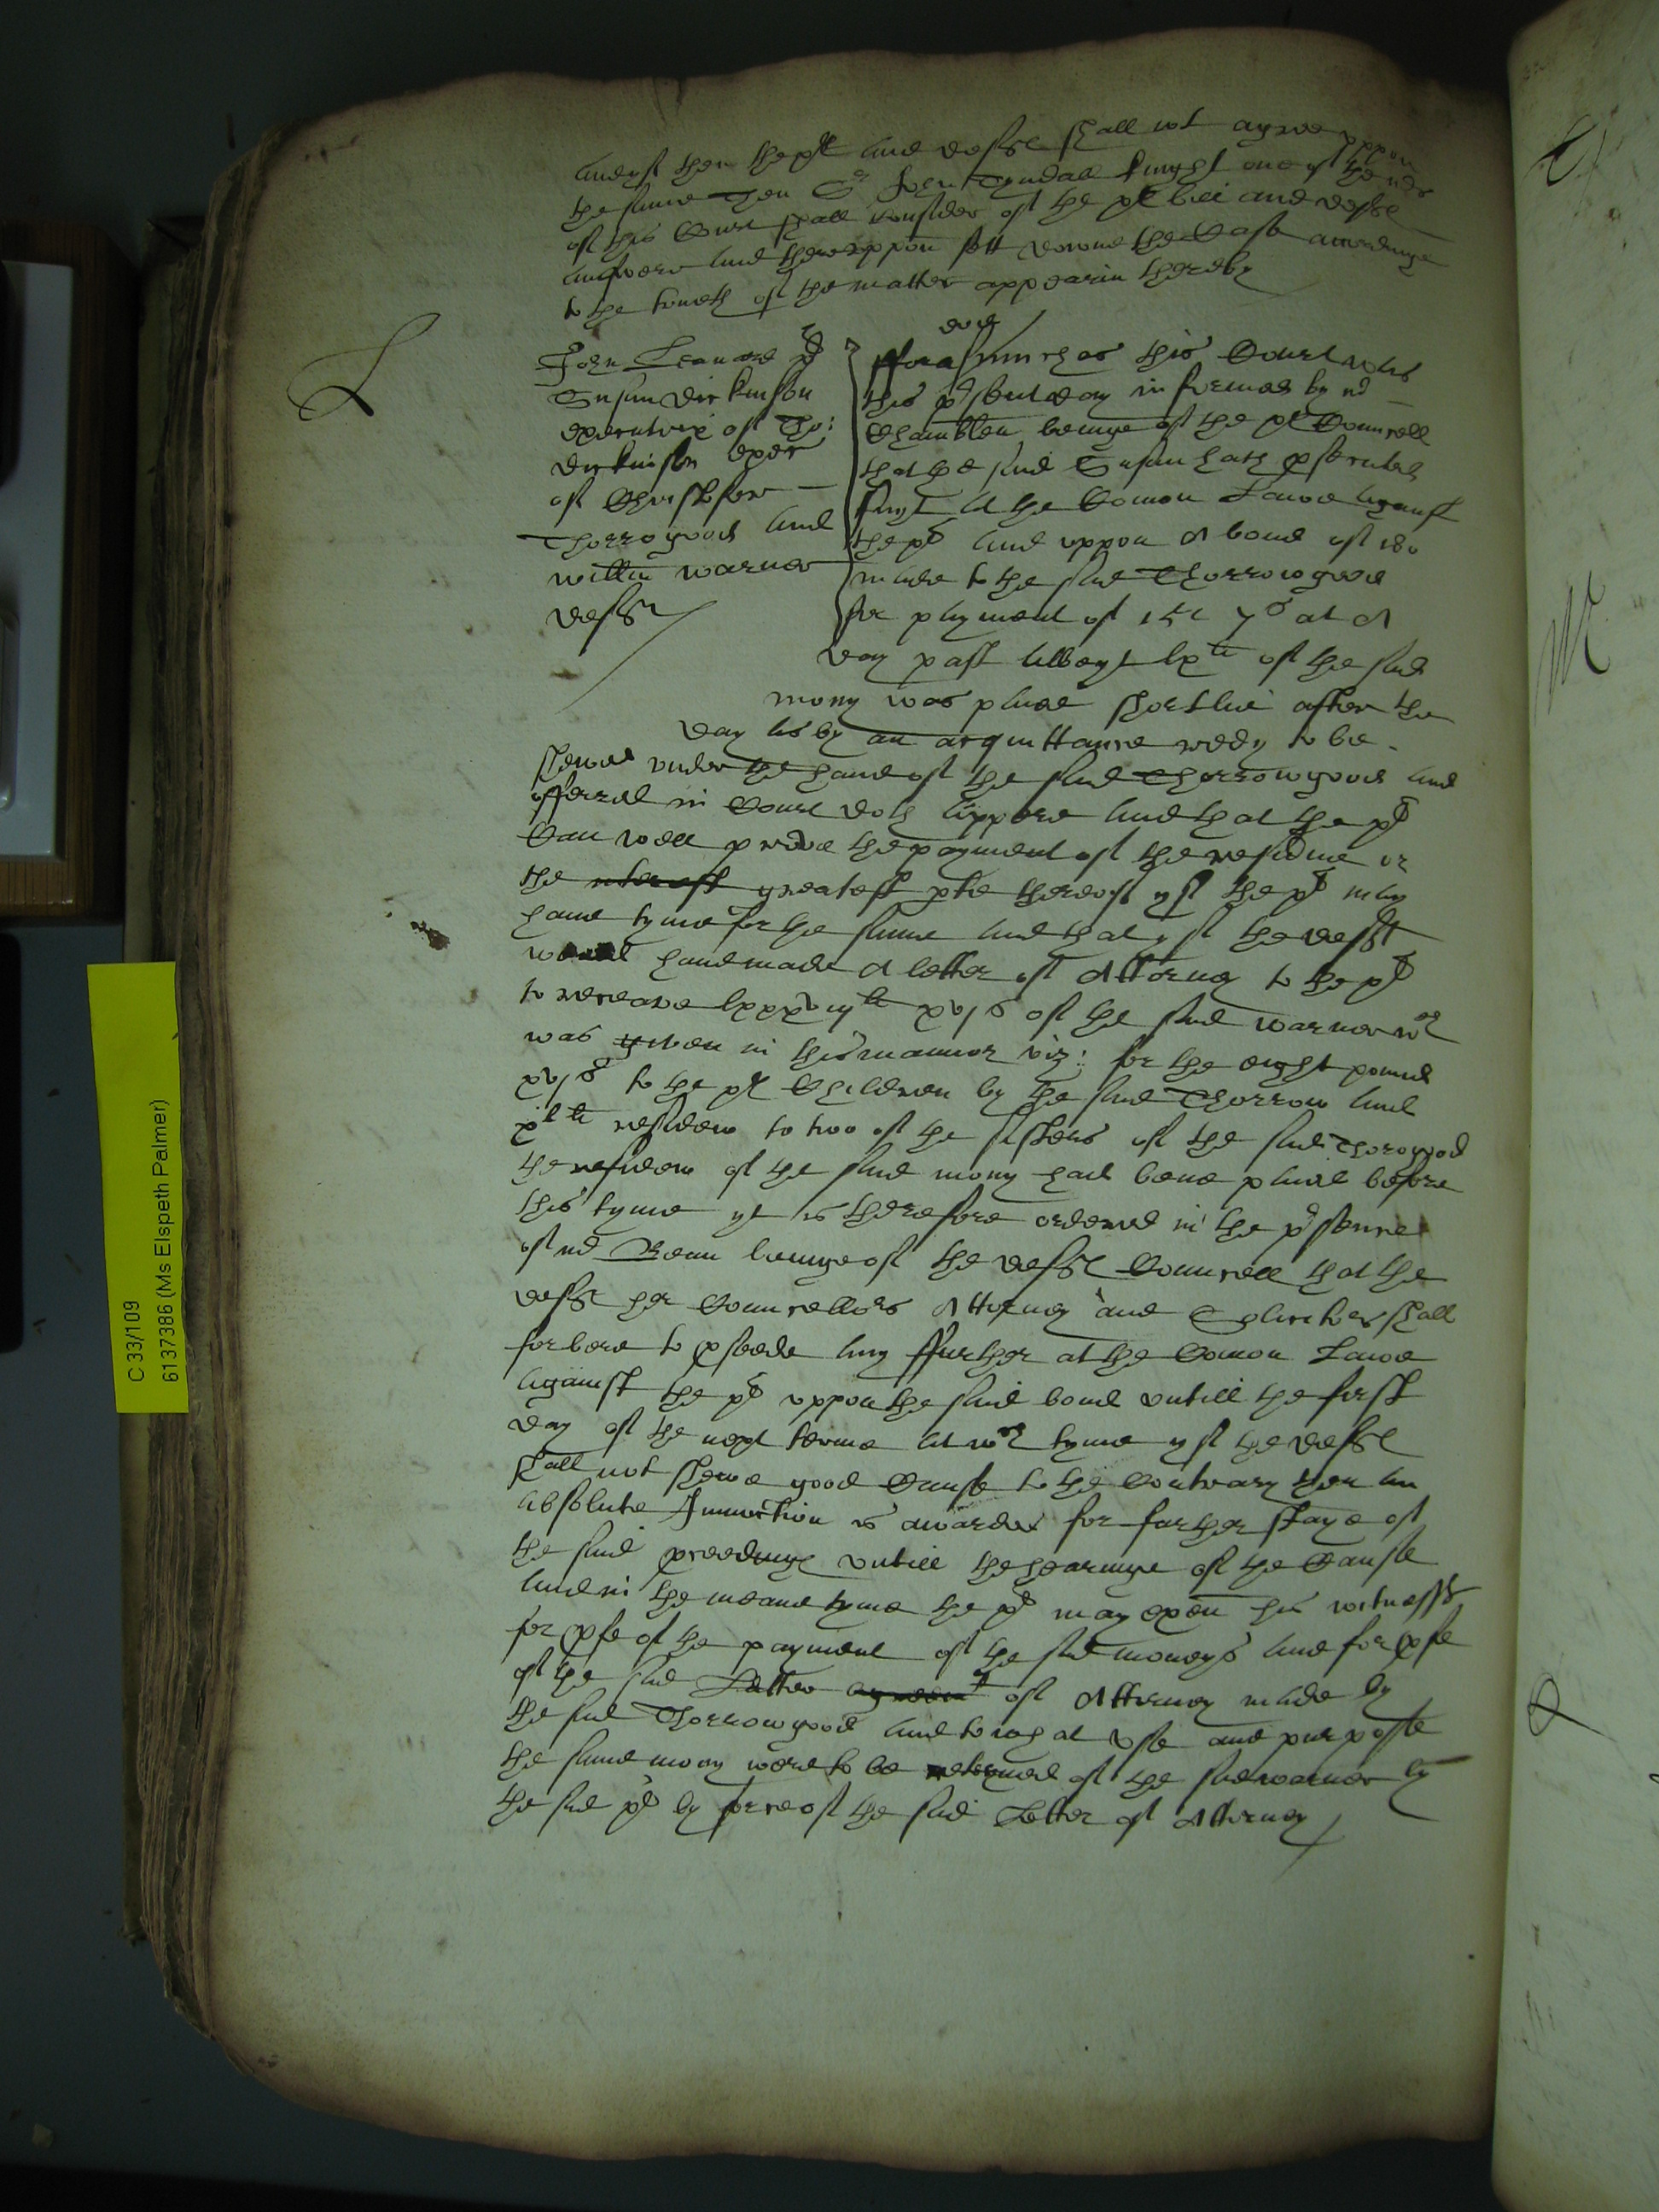 and yf then the plt and defte shall not agree vppon
the same Then Sr John Tyndall knight one of the mrs
of this Court shall consider of the pl bill and defte
answere and therevppon sett downe the Case accordinge
to the trueth of the matter appearin thereby
L
John Leonard pl
Susan Dickinson
executrix of Tho:
Dickinson exer
of Christofer
Thorrogood and
willm warner
defts
fforasmuch as this Court was
this psent day informed by mr
Chamblen beinge of the pl Councell
that the said Susan hath psecuted
suyt at the Comon Lawe against
the pl and vppon a bond of 180
made to the said Thorrowgood
for payment of
day past albeyt lxli of the said
mony was paied shortlie after the
day as by an acquittance redy to be
shewed vnder the hand of the said Thorrowgood and
offerred in Court doth appere and that the pl
Can well prove the payment of the residue or
the interest greatest pte thereof yf the pl may
have tyme for the same and that yf the deft
would have made a letter of Attorny to the pl
to receave of the said warner wch
was given in this manner viz: for the eight pound
xvjs to the pl Children by the said Thorrow and
xlli residew to two of the sisters of the said Thorogood
the residew of the said mony had bene paied before
this tyme yt is therefore ordered in the psence
of mr beinge of the defte Councell that the
defte her Councellors Attorney and Soliciter shall
forbere to pceede any ffurther at the Comon Lawe
against the pl vppon the said bond vntill the first
day of the next terme at wch tyme yf the defte
shall not shewe good Cause to the Contrary then an
absolute Iniunction is awarded for further staye of
the said proceedinge vntill the hearinge of the Cause
and in the meane tyme the pl may exam his witnesses
for pfe of the payment of the said moneys and for pfe
of the said Letter agreemt of Attorney made by
the said Thorrowgood and to what vse and purposse
the same mony were to be receyued of the said warner by
the said pl by force of the said Letter of Attorney
C 33/109
6137386 (Ms Elspeth Palmer)